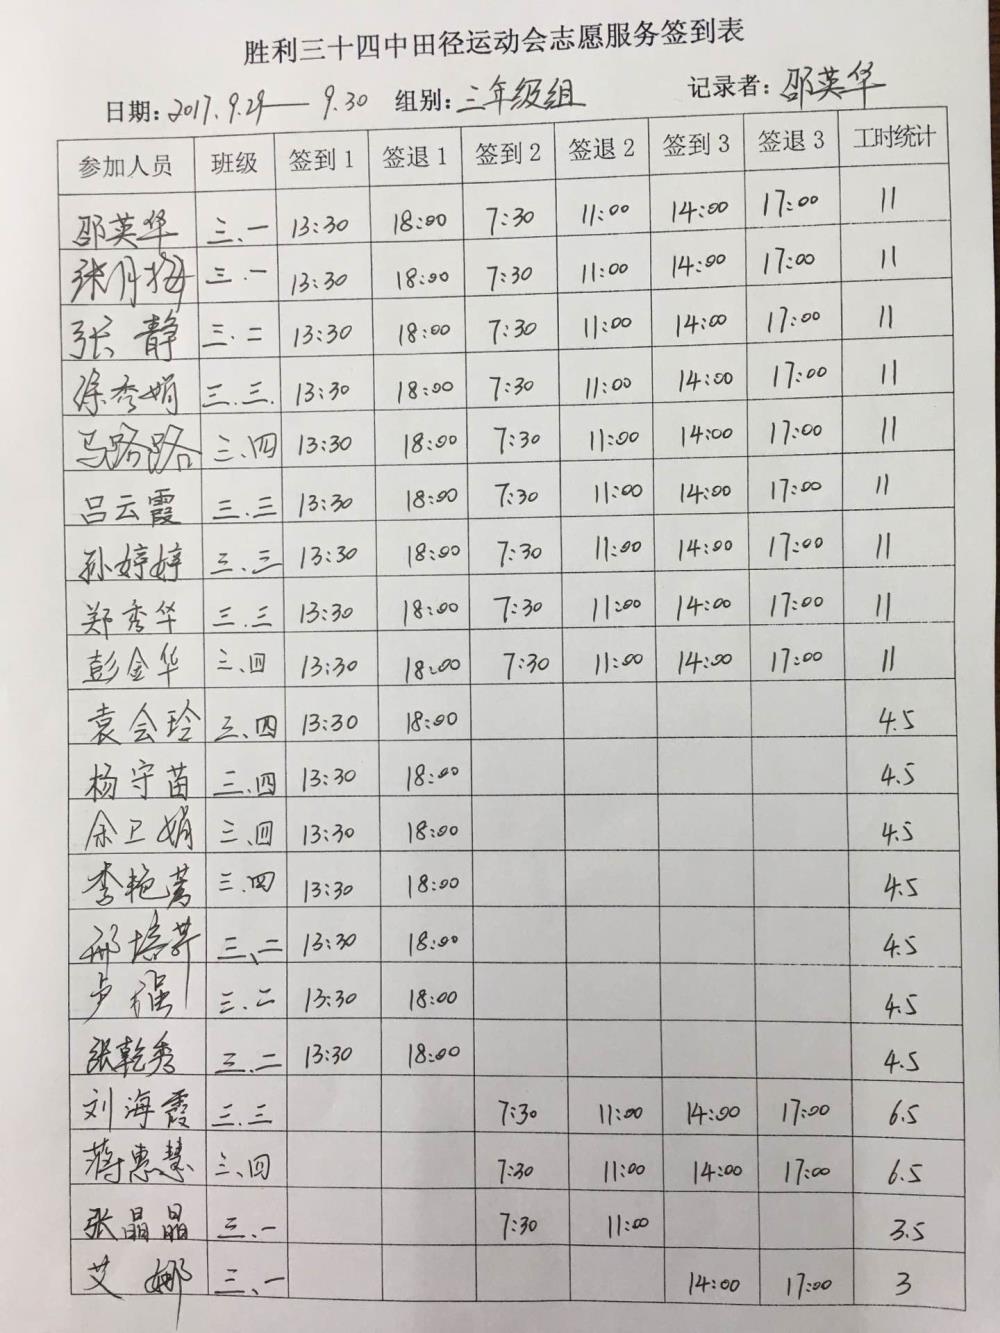 胜利三十四中田径运动会志愿服务签到表
日期: 2017.9.29—9.30 组别: 三年级组 记录者: 邵英华
参加人员 班级 签到1 签退1 签到2 签退2 签到3 签退3 工时统计
邵英华 三、一 13:30 18:00 7:30 11:00 14:00 17:00 11
张月梅 三.一 13:30 18:00 7:30 11:00 14:00 17:00 11
张静 三.二 13:30 18:00 7:30 11:00 14:00 17:00 11
徐秀娟 三.三. 13:30 18:00 7:30 11:00 14:00 17:00 11
马路路 三、四 13:30 18:00 7:30 11:00 14:00 17:00 11
吕云霞 三.三 13:30 18:00 7:30 11:00 14:00 17:00 11
孙婷婷 三、三 13:30 18:00 7:30 11:00 14:00 17:00 11
郑秀华 三.三 13:30 18:00 7:30 11:00 14:00 17:00 11
彭金华 三、四 13:30 18:00 7:30 11:00 14:00 17:00 11
袁会玲 三、四 13:30 18:00 4.5
杨守苗 三.四 13:30 18:00 4.5
余卫娟 三、四 13:30 18:00 4.5
李艳 三.四 13:30 18:00 4.5
邢培 三、二 13:30 18:00 4.5
卢强 三.二 13:30 18:00 4.5
张乾秀 三.二 13:30 18:00 4.5
刘海霞 三.三 7:30 11:00 14:00 17:00 6.5
蒋惠慧 三、四 7:30 11:00 14:00 17:00 6.5
张晶晶 三.一 7:30 11:00 3.5
艾娜 三、一 14:00 17:00 3